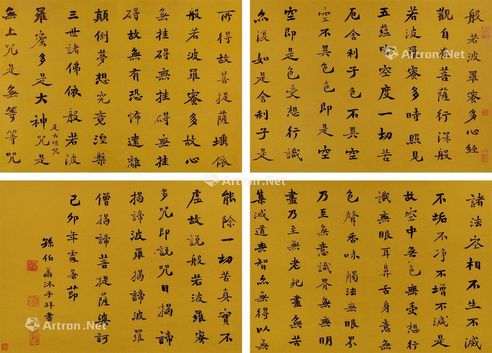 般若波羅蜜多心經
觀自在菩薩行深般
若波羅蜜多時照見
五蘊皆空度一切苦
厄舍利子色不異空
空不異色色即是空
空即是色受想行識
亦復如是舍利子是
諸法空相不生不滅
不垢不淨不增不減是
故空中無色無受想行
識無眼耳鼻舌身意無
色聲香味觸法無眼界
乃至無意識界無無明
盡乃至無老死盡無苦
集滅道無智亦無得以無
所得故菩提薩埵依
般若波羅蜜多故心
無挂礙無挂
礙故無有恐怖遠離
顛倒夢想究竟涅槃
三世諸佛依般若波
羅蜜多是大神咒是
是大明咒
無上咒是無等等咒
能除一切苦真實不
虛故說般若波羅蜜
多咒即說咒曰揭諦
揭諦波羅揭諦波羅
僧揭諦菩提薩婆訶
己卯年處暑節
孫伯翕沐手拜書
Artron.Net
Artron.Net
Artron.Net
Artron.Net